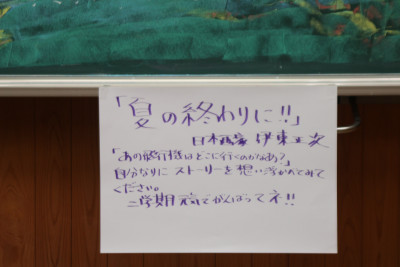 「夏の終わりに!!」
日本画家 伊東正次
「あの飛行機はどこに行くのかなあ?」
自分なりに ストーリーを想い浮かべてみて
ください。
二学期 元気でがんばってネ!!